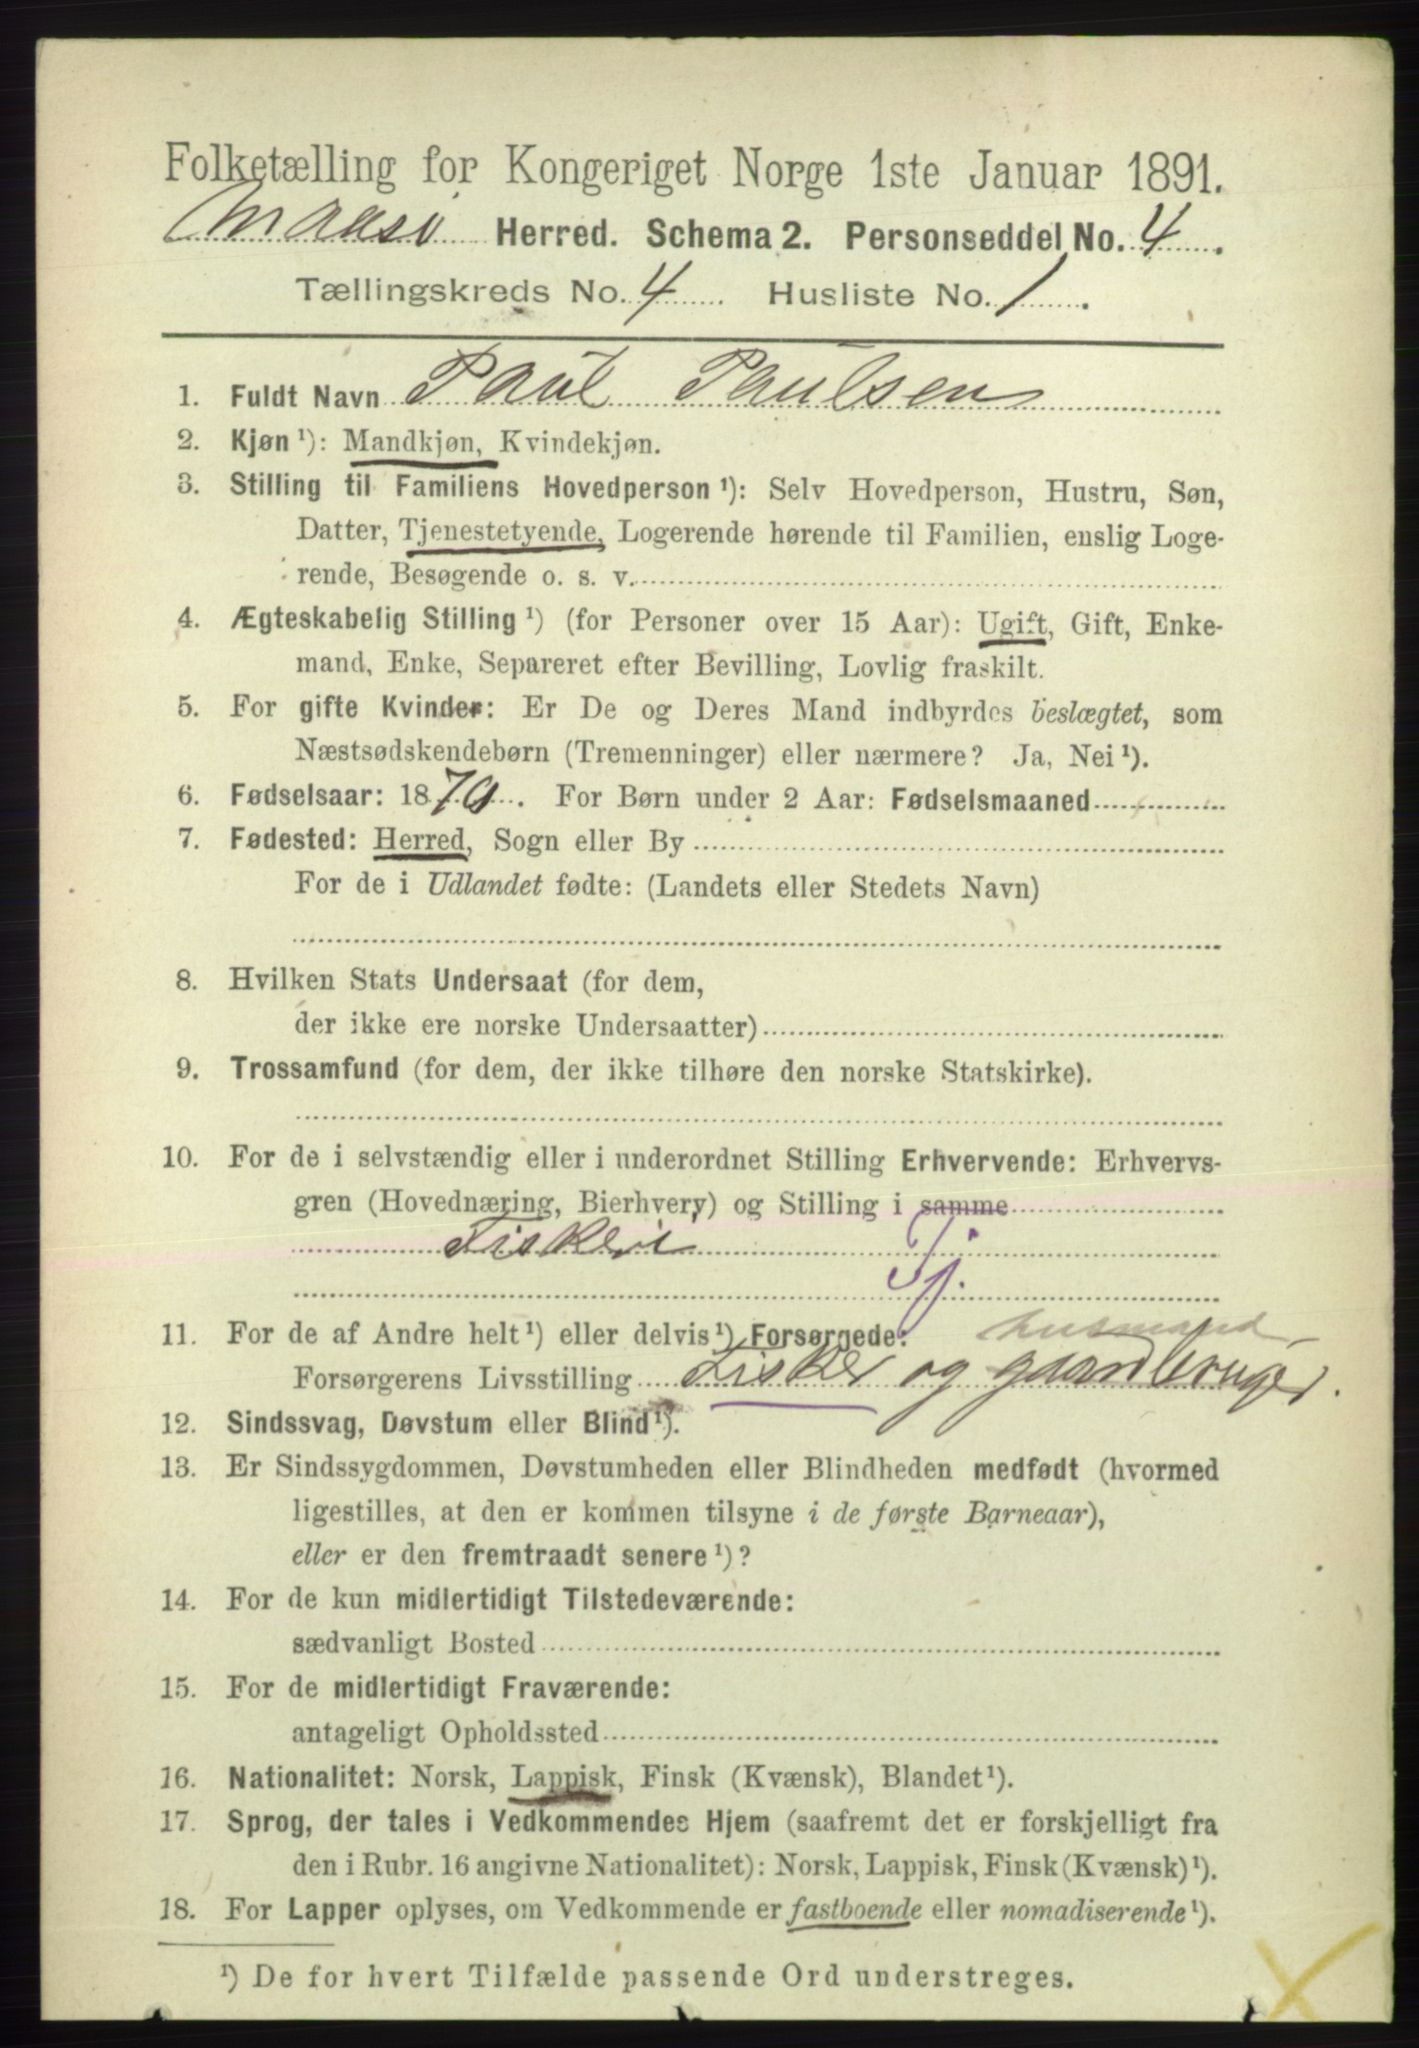 Folketælling for Kongeriget Norge 1ste Januar 1891.
Maasö Herred. Schema 2. Personseddel No. 4.
Tællingskreds No. 4 Husliste No. 1.
1. Fuldt Navn Paul Paulsen
2. Kjøn ¹): Mandkjøn, Kvindekjøn.
3. Stilling til Familiens Hovedperson ¹): Selv Hovedperson, Hustru, Søn,
Datter, Tjenestetyende, Logerende hørende til Familien, enslig Loge-
rende, Besøgende o. s. v.
4. Ægteskabelig Stilling ¹) (for Personer over 15 Aar): Ugift, Gift, Enke-
mand, Enke, Separeret efter Bevilling, Lovlig fraskilt.
5. For gifte Kvinder: Er De og Deres Mand indbyrdes beslægtet, som
Næstsødskendebørn (Tremenninger) eller nærmere? Ja, Nei ¹).
6. Fødselsaar: 1870. For Børn under 2 Aar: Fødselsmaaned
7. Fødested: Herred, Sogn eller By
For de i Udlandet fødte: (Landets eller Stedets Navn)
8. Hvilken Stats Undersaat (for dem,
der ikke ere norske Undersaatter)
9. Trossamfund (for dem, der ikke tilhøre den norske Statskirke).
10. For de i selvstændig eller i underordnet Stilling Erhvervende: Erhvervs-
gren (Hovednæring, Bierhverv) og Stilling i samme
Fiskeri Tj.
11. For de af Andre helt ¹) eller delvis ¹) Forsørgede: husmand
Forsørgerens Livsstilling Fisker og gaardbruger.
12. Sindssvag, Døvstum eller Blind ¹).
13. Er Sindssygdommen, Døvstumheden eller Blindheden medfødt (hvormed
ligestilles, at den er kommen tilsyne i de første Barneaar),
eller er den fremtraadt senere ¹)?
14. For de kun midlertidigt Tilstedeværende:
sædvanligt Bosted
15. For de midlertidigt Fraværende:
antageligt Opholdssted
16. Nationalitet: Norsk, Lappisk, Finsk (Kvænsk), Blandet ¹).
17. Sprog, der tales i Vedkommendes Hjem (saafremt det er forskjelligt fra
den i Rubr. 16 angivne Nationalitet): Norsk, Lappisk, Finsk (Kvænsk) ¹).
18. For Lapper oplyses, om Vedkommende er fastboende eller nomadiserende ¹).
¹) De for hvert Tilfælde passende Ord understreges.